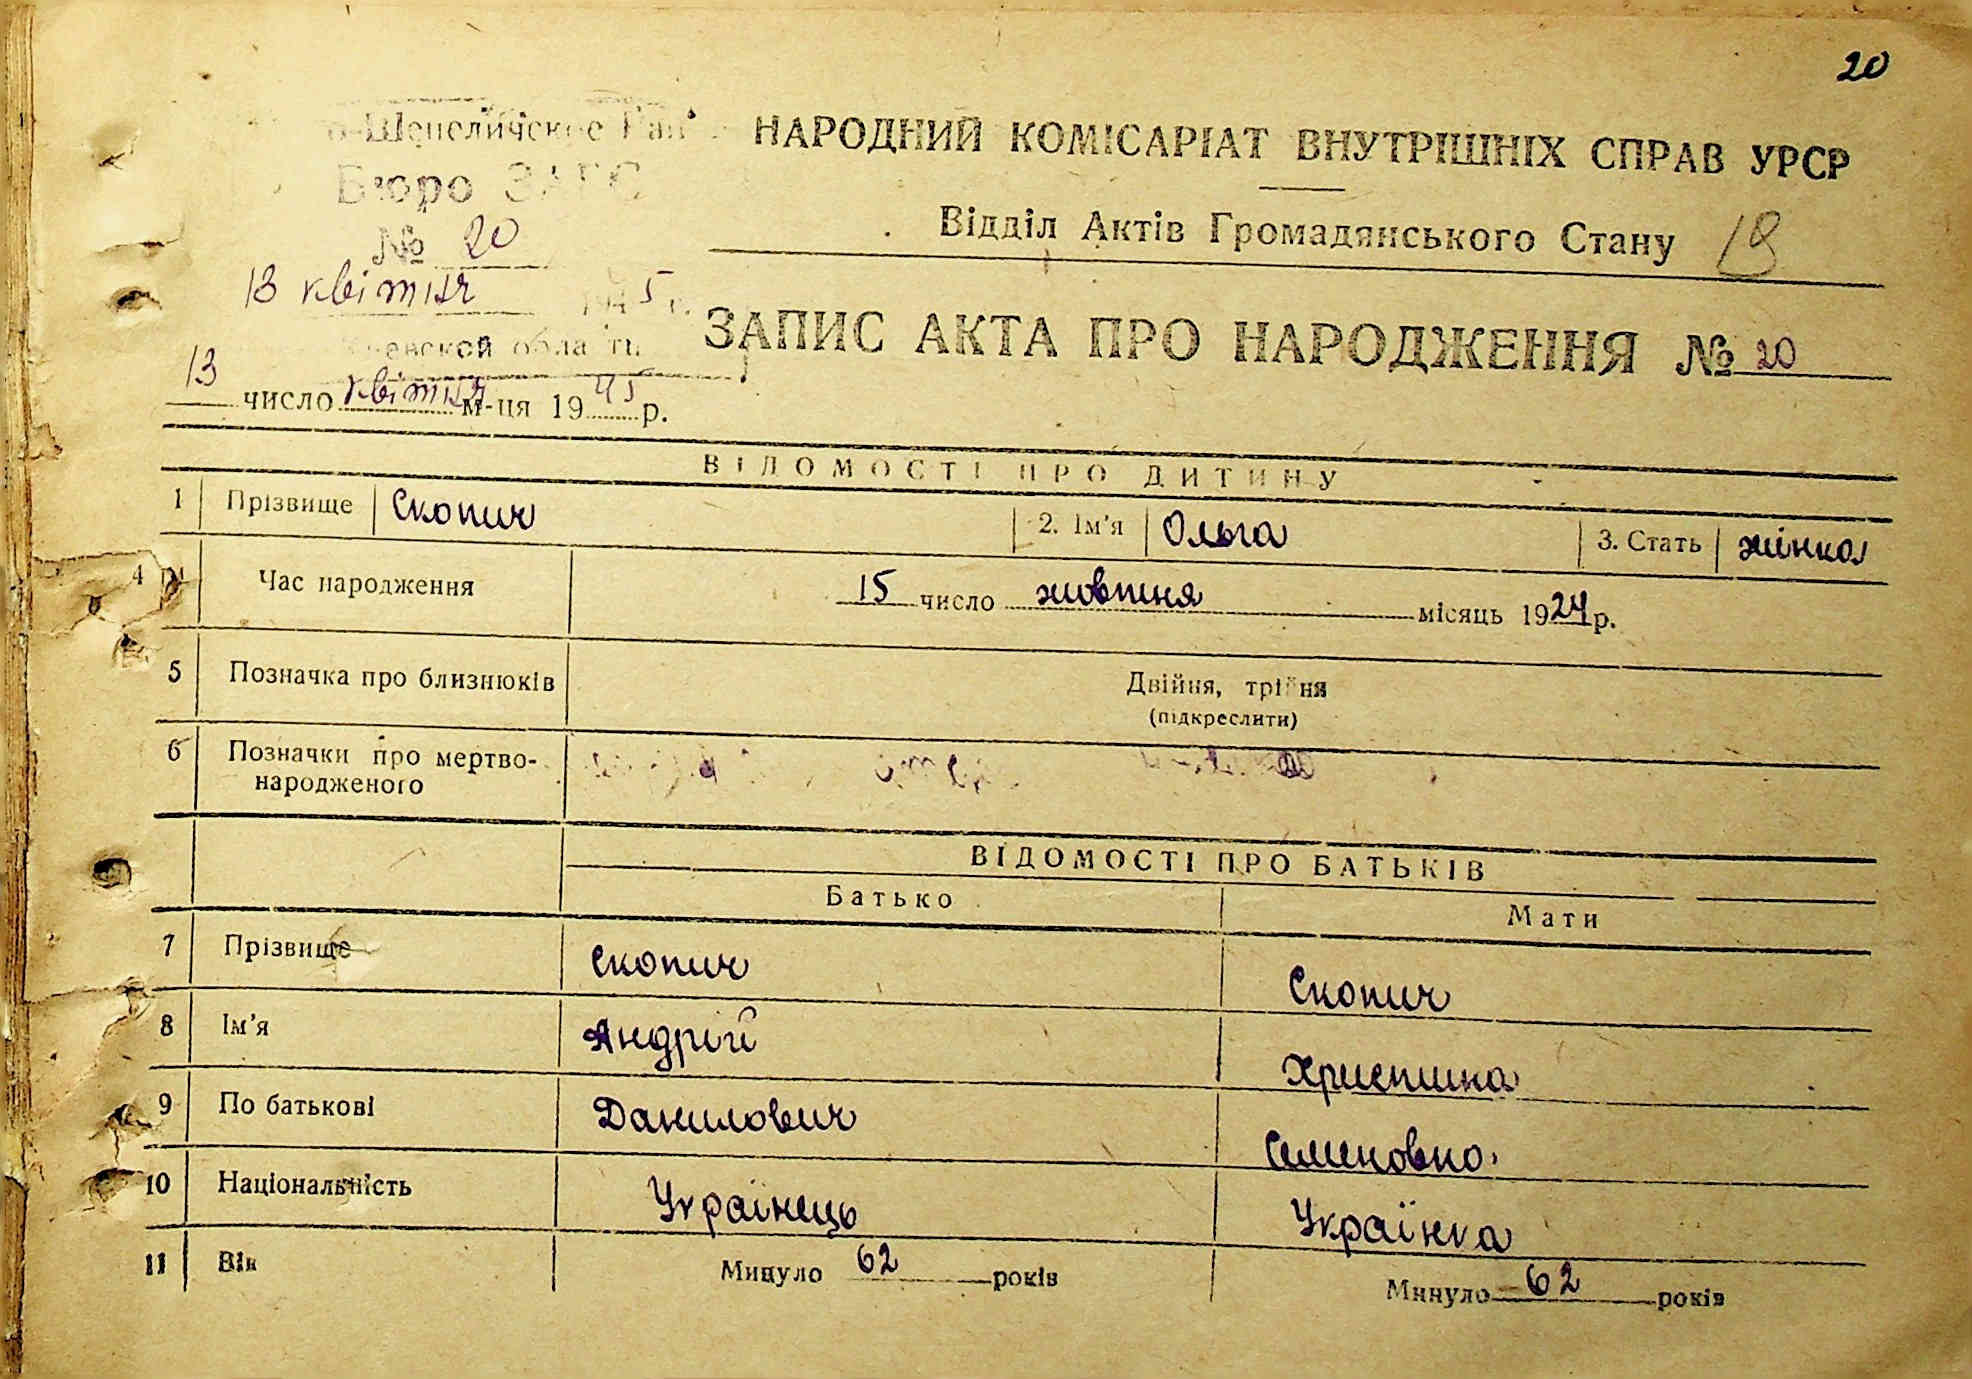 20
НАРОДНИЙ КОМІСАРІАТ ВНУТРІШНІХ СПРАВ УРСР
Бюро ЗАГС
Відділ Актів Громадянського Стану
№ 20
13 квітня 1945 г.
ЗАПИС АКТА ПРО НАРОДЖЕННЯ № 20
13 число квітня м-ця 1945 р.
ВІДОМОСТІ ПРО ДИТИНУ
1 Прізвище Скопич 2. Ім'я Ольга 3. Стать жінка
4 Час народження 15 число жовтня місяць 1924 р.
5 Позначка про близнюків Двійня, трійня
(підкреслити)
6 Позначки про мертво-
народженого
ВІДОМОСТІ ПРО БАТЬКІВ
Батько Мати
7 Прізвище Скопич Скопич
8 Ім'я Андрій Христина
9 По батькові Данилович Семеновна
10 Національність Українець Українка
11 Вік Минуло 62 років Минуло 62 років